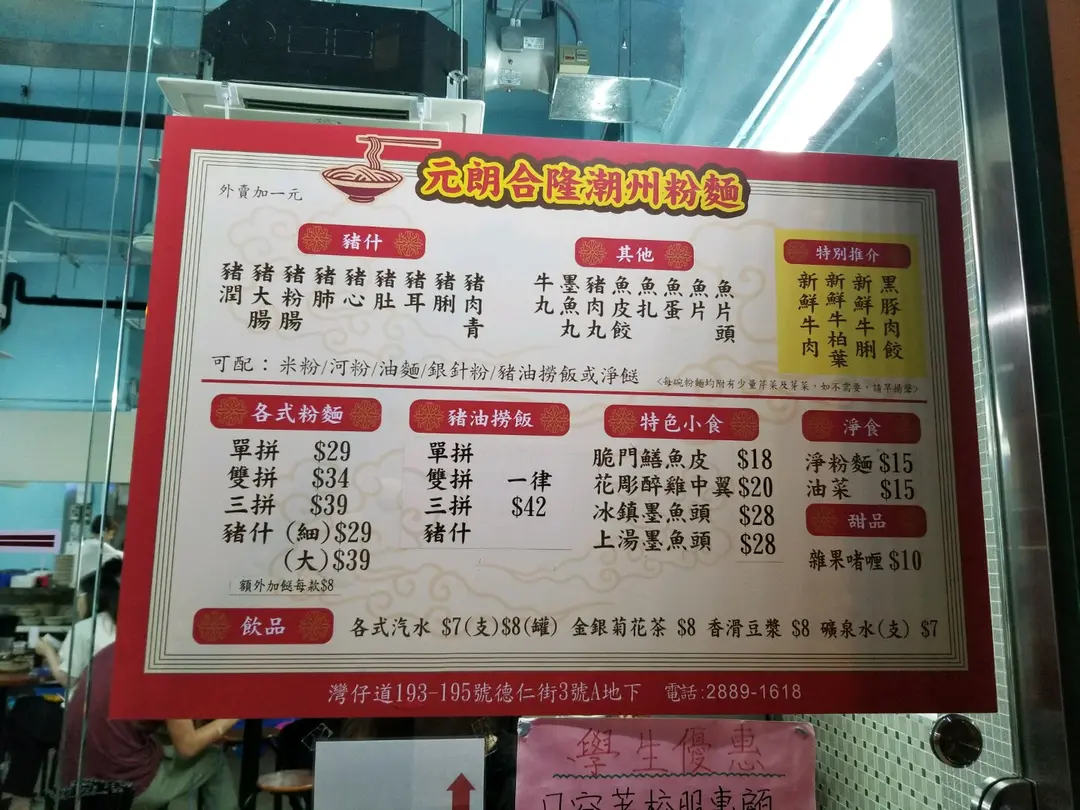 元朗合隆潮州粉麵
外賣加一元
豬什
豬潤
豬大腸
豬粉腸
豬肺
豬心
豬肚
豬耳
豬脷
豬肉青
其他
牛丸
墨魚丸
豬肉丸
魚皮餃
魚扎
魚蛋
魚片
魚片頭
特別推介
新鮮牛肉
新鮮牛柏葉
新鮮牛脷
黑豚肉餃
可配：米粉/河粉/油麵/銀針粉/豬油撈飯或淨餸
<每碗粉麵均附有少量芹菜及芽菜，如不需要，請早揚聲>
各式粉麵
單拼 $29
雙拼 $34
三拼 $39
豬什 (細)$29
(大)$39
額外加餸每款$8
豬油撈飯
單拼
雙拼 一律
三拼 $42
豬什
特色小食
脆門鱔魚皮 $18
花彫醉雞中翼 $20
冰鎮墨魚頭 $28
上湯墨魚頭 $28
淨食
淨粉麵 $15
油菜 $15
甜品
雜果啫喱 $10
飲品
各式汽水 $7(支)$8(罐) 金銀菊花茶 $8 香滑豆漿 $8 礦泉水(支) $7
灣仔道193-195號德仁街3號A地下 電話:2889-1618
學生優惠